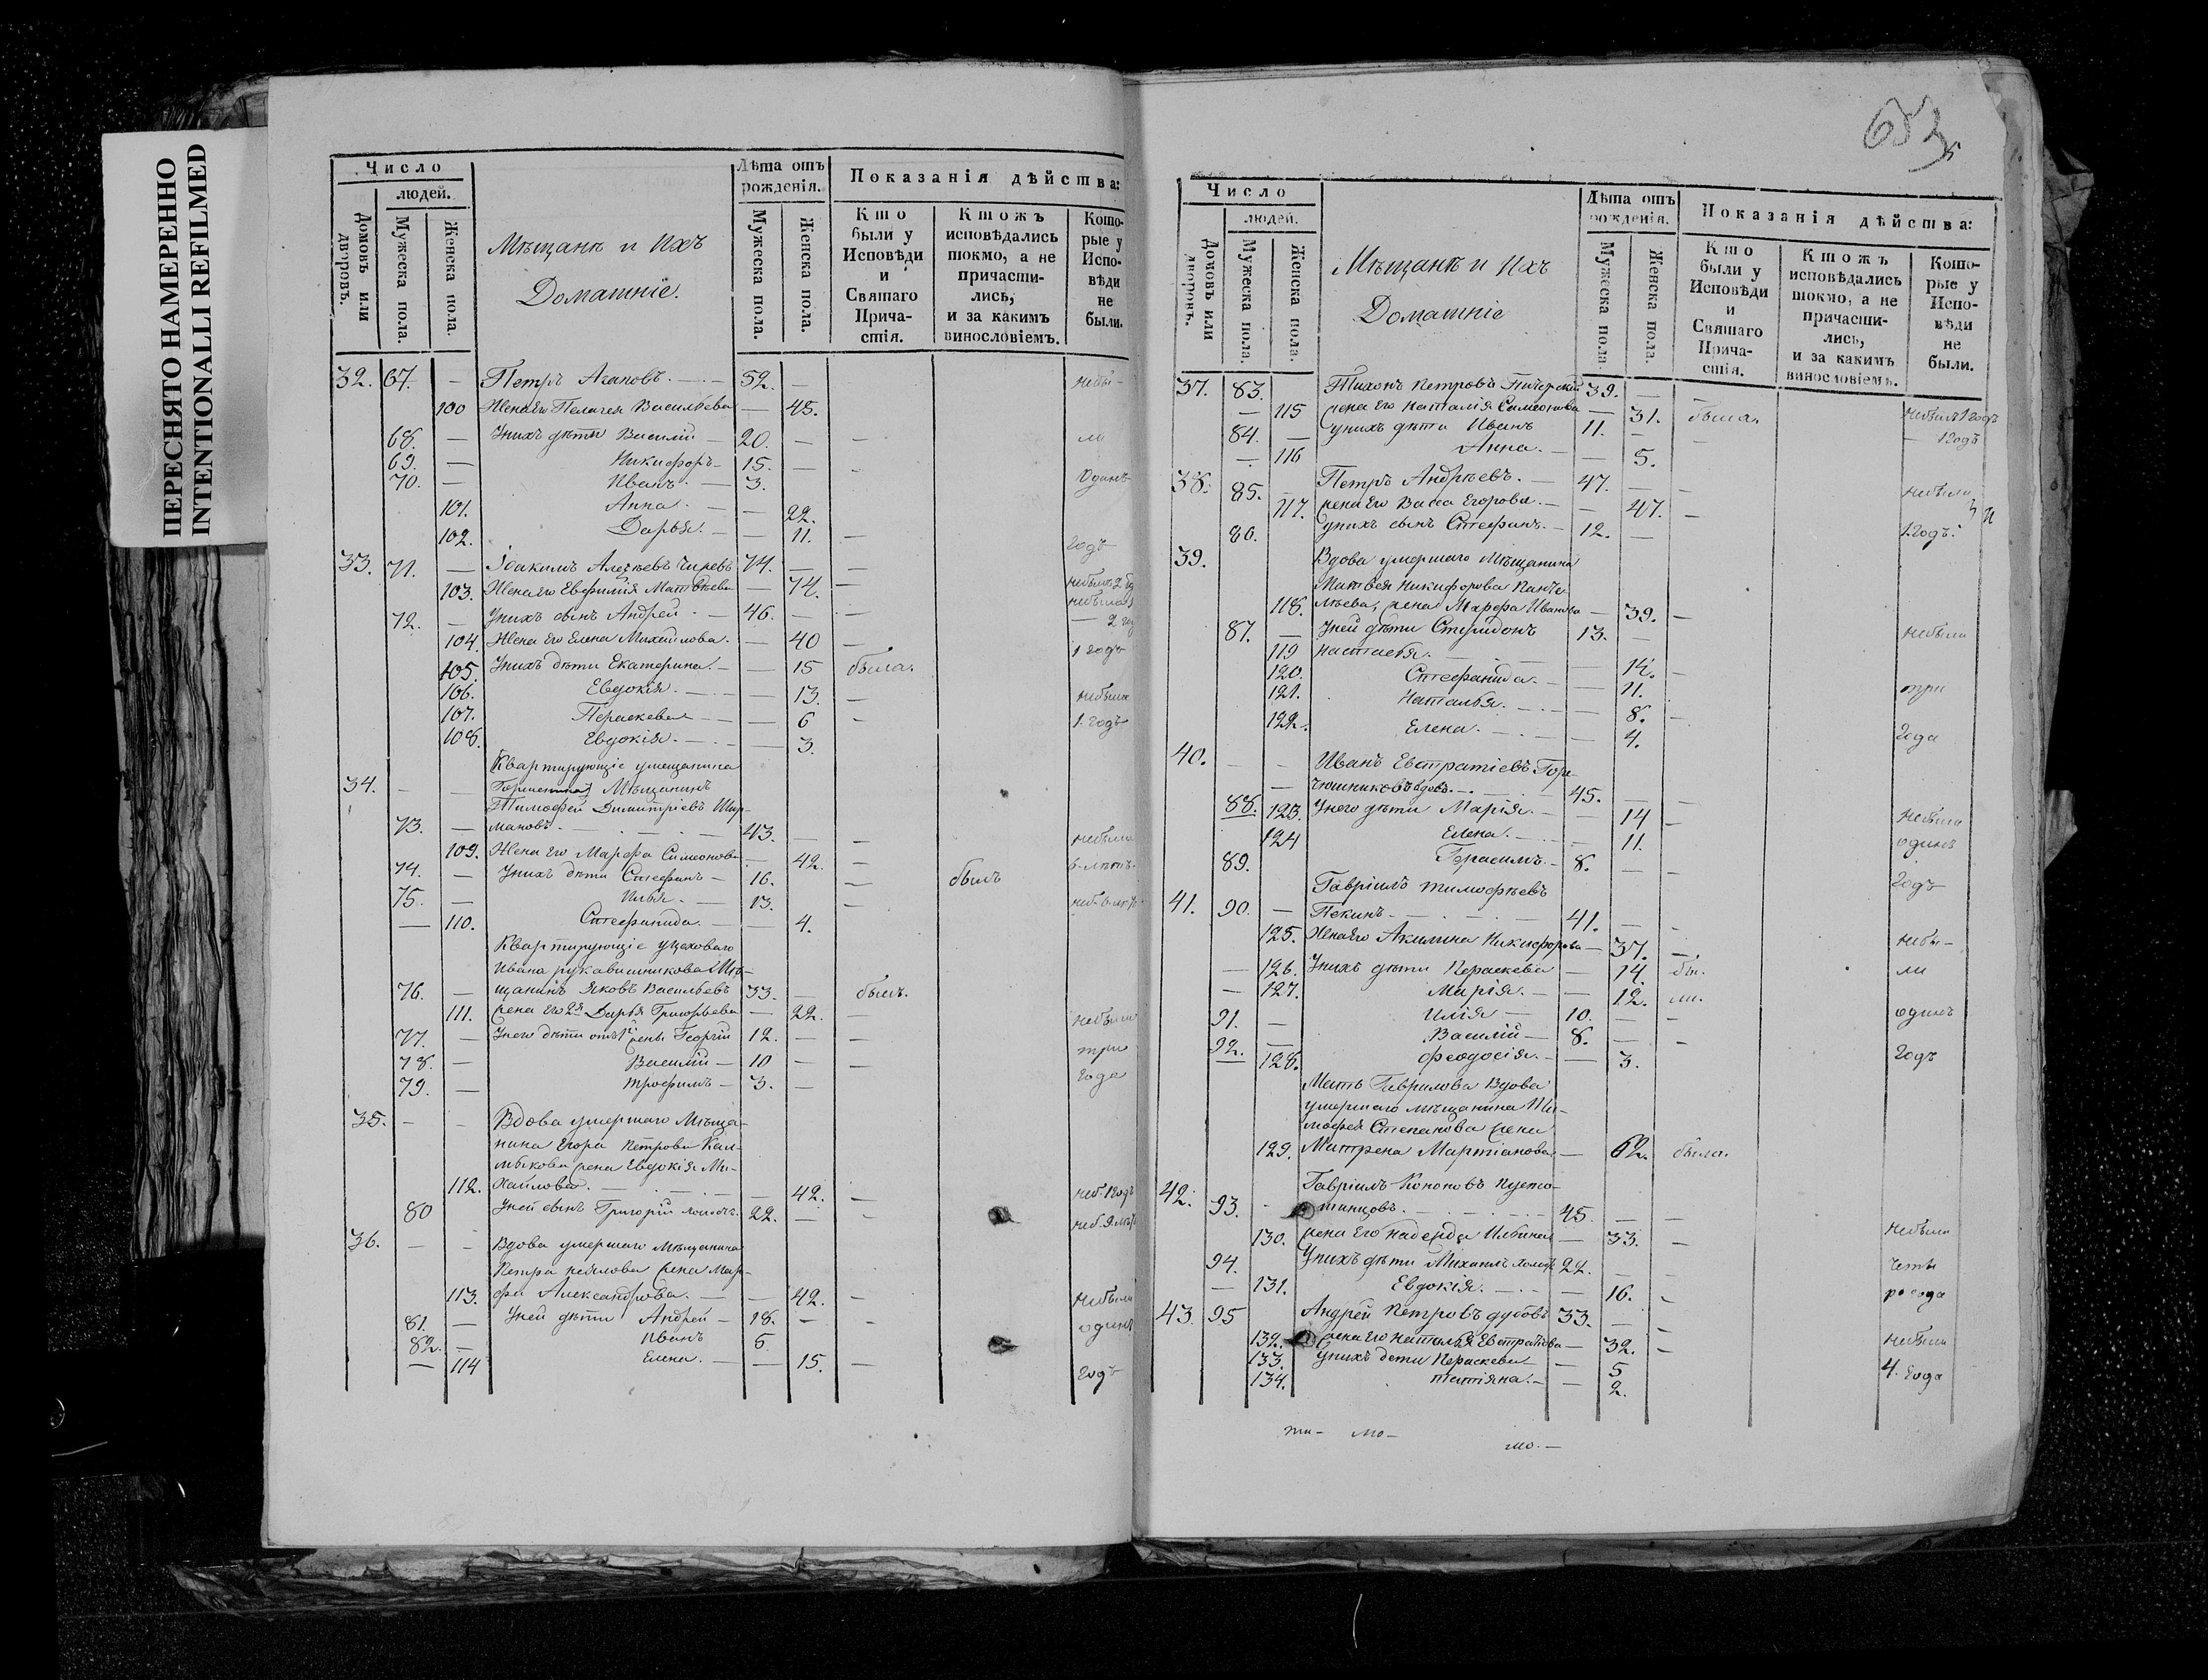 ПЕРЕСНЯТО НАМЕРЕННО
INTENTIONALLI REFILMED
Число
людей.
Домовъ или дворовъ.
Мужеска пола.
Женска пола.
Мѣщанѣ и Ихъ
Домашніе.
Лѣта отъ рожденія.
Мужеска пола.
Женска пола.
Показанія дѣйства:
Кто были у Исповѣди и Святаго Причастія.
Ктожъ исповѣдались токмо, а не причастились, и за какимъ винословіемъ.
Которые у Исповѣди не были.
32. 67. — Петръ Агаповъ. — 52. — небы-
100 Жена Его Пелагея Васильева — 45.
68. — Унихъ дѣти Василій — 20. — — ли
69. — Никифоръ — 15. — —
70. — Иванъ. — 3. Одинъ
101. Анна. — — 22.
102. Дарья. — — 11. — годъ
33. 71. — Іоакимъ Алеѯѣевъ Чиревъ 74. — —
103. Жена Его Евфимія Матвѣева — 74. —
72. — Унихъ сынъ Андрей — 46. — —
104. Жена Его Елена Михайлова. — 40 — 1 годъ
105. Унихъ дѣти Екатерина. — — 15 была.
106. Евдокія. — — 13. — небыла
107. Параскева — — 6 — 1. годъ
108. Евдокія. — — 3.
Квартирующіе умещанина
34. — — Мѣщанинъ
Тимофей Димитріевъ Шар-
73. — мановъ. — 43. — — небыли
109. Жена Его Марфа Симеонова — 42. — 6-лѣтъ.
74. — Унихъ дѣти Стефанъ — 16. — былъ
75. — Илья. — 13. —
— 110. Стефанида. — — 4.
Квартирующіе уцеховаго
Ивана рукавишникова Мѣ-
76. — щанинъ Яковъ Васильевъ 33. — былъ.
111. жена его 2я Дарья Григорьева — 22. — небыли
77. — Унего дѣти отъ 1й жены Георгій 12. — — три
78. — Василій — 10 — —
79. — Трофимъ — 3. — года
35. — — Вдова умершаго Мѣща-
нина Егора Петрова Кал-
мыкова жена Евдокія Ми-
112. хайлова. — — 42. — неб. 1 годъ
80 Уней сынъ Григорій холостъ. 22. — —
36. — — Вдова умершаго Мѣщанина
Петра жена Мар-
113. фа Александрова. — — 42. — небыли
81. — Уней дѣти Андрей — 18. — — одинъ
82. — Иванъ 6.
— 114 Елена. — — 15. — годъ
653
Число
людей.
Домовъ или дворовъ.
Мужеска пола.
Женска пола.
Мѣщанѣ и Ихъ
Домашніе
Лѣта отъ рожденія.
Мужеска пола
Женска пола.
Показанія дѣйства:
Кто были у Исповѣди и Святаго Причастія.
Ктожъ исповѣдались токмо, а не причастились, и за какимъ винословіемъ.
Которые у Исповѣди не были.
37. 83. Тихонъ Петровъ 39. — — небылъ 1 годъ
— 115 жена Его Наталія Симеонова — 31. была.
84. — унихъ дѣти Иванъ 11. — — — 1 годъ
— 116 Анна. — — 5.
38. 85. — Петръ Андрѣевъ. — 47. — — небыли
117. жена Его Васса Егорова. — — 47. —
86. унихъ сынъ Стефанъ. — 12. — 1. годъ.
39. Вдова умершаго Мѣщанина
Матвея Никифорова Панте-
118. лѣева, жена Марфа Иванова — 39. —
87. — Уней дѣти Спиридонъ 13. — небыли
119 Настасья. — 14. —
120. Стефанида. — — 11. три
121. Наталья. — 8. —
122. Елена. — — 4. года
40. — — Иванъ Евстратіевъ Горе-
88. — вдовъ. — 45. — —
123. Унего дѣти Марія. — — 14 — небыли
124 Елена. — — 11. одинъ
89. Герасимъ. — 8. — — годъ
Гавріилъ Тимофѣевъ
41. 90. — Пекинъ. — 41. — —
125. Жена Его Акилина Никифорова — 37. — небы-
— 126. Унихъ дѣти Параскева — 14. бы- ли
— 127. Марія. — — 12. ли.
91. — Илія — 10. — — одинъ
92. — Василій — 8. — —
128. Феодосія. — — 3. годъ
Мать Гаврилова Вдова
умершаго мѣщанина Ти-
мофея Степанова жена
129. Матрена Мартіанова — 62. была.
Гавріилъ Кононовъ Пусто-
42. 93. — шинцовъ. — 45. — —
130. жена Его Надежда Ильина — 33. — небыли
94. Унихъ дѣти Михаилъ холостъ 22. — — четы
— 131. Евдокія. — — 16. — ре года
43. 95 Андрей Петровъ дубовъ 33. — —
132. жена Его Наталья Евстратіева — 32. — небыли
133. Унихъ дети Параскева — 5 4. года
134. татіяна. — — 2.
ти- мо- мо. —